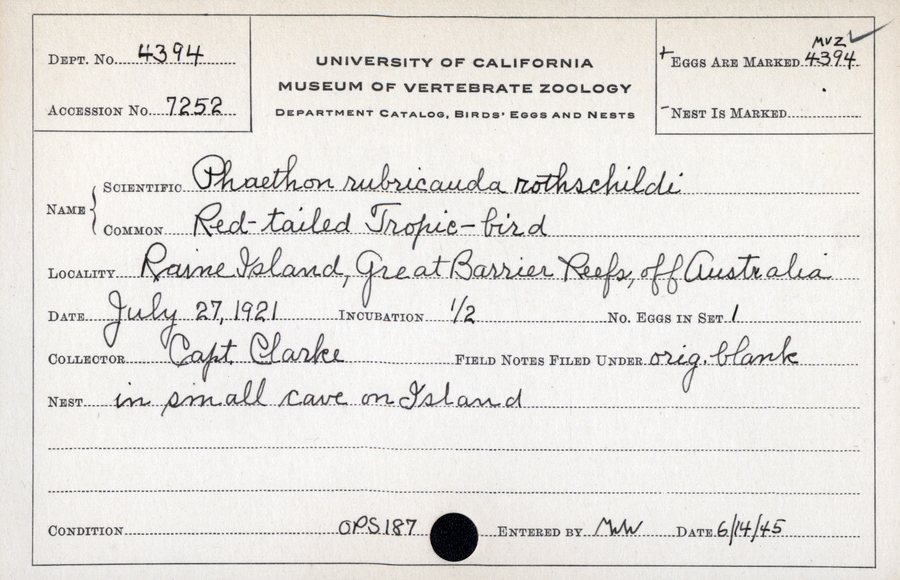 Dept. No. 4394
Accession No. 7252
University of California
Museum of Vertebrate Zoology
Department Catalog, Birds' Eggs and Nests
MVZ ✓
+ Eggs Are Marked 4394
- Nest Is Marked
Name { Scientific Phaethon rubricauda rothschildi
Common Red-tailed Tropic-bird
Locality Raine Island, Great Barrier Reefs, off Australia
Date July 27, 1921 Incubation 1/2 No. Eggs in Set 1
Collector Capt. Clarke Field Notes Filed Under orig. blank
Nest in small cave on Island
Condition OPS187 Entered by MW Date 6/14/45